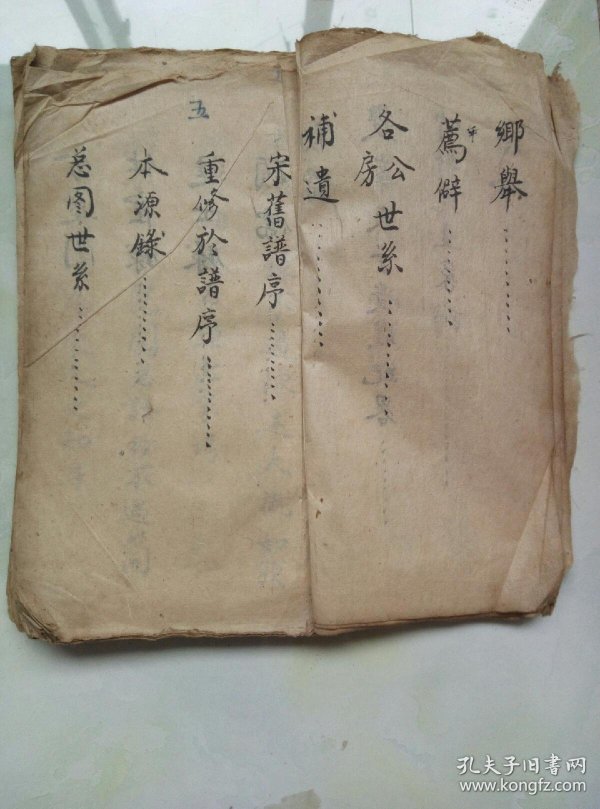 鄉舉…………
薦辟…………
各房公世系…………
補遺…………
宋舊譜序…………
重修於譜序…………
本源錄…………
总图世系…………
五
孔夫子旧书网
kongfz.com